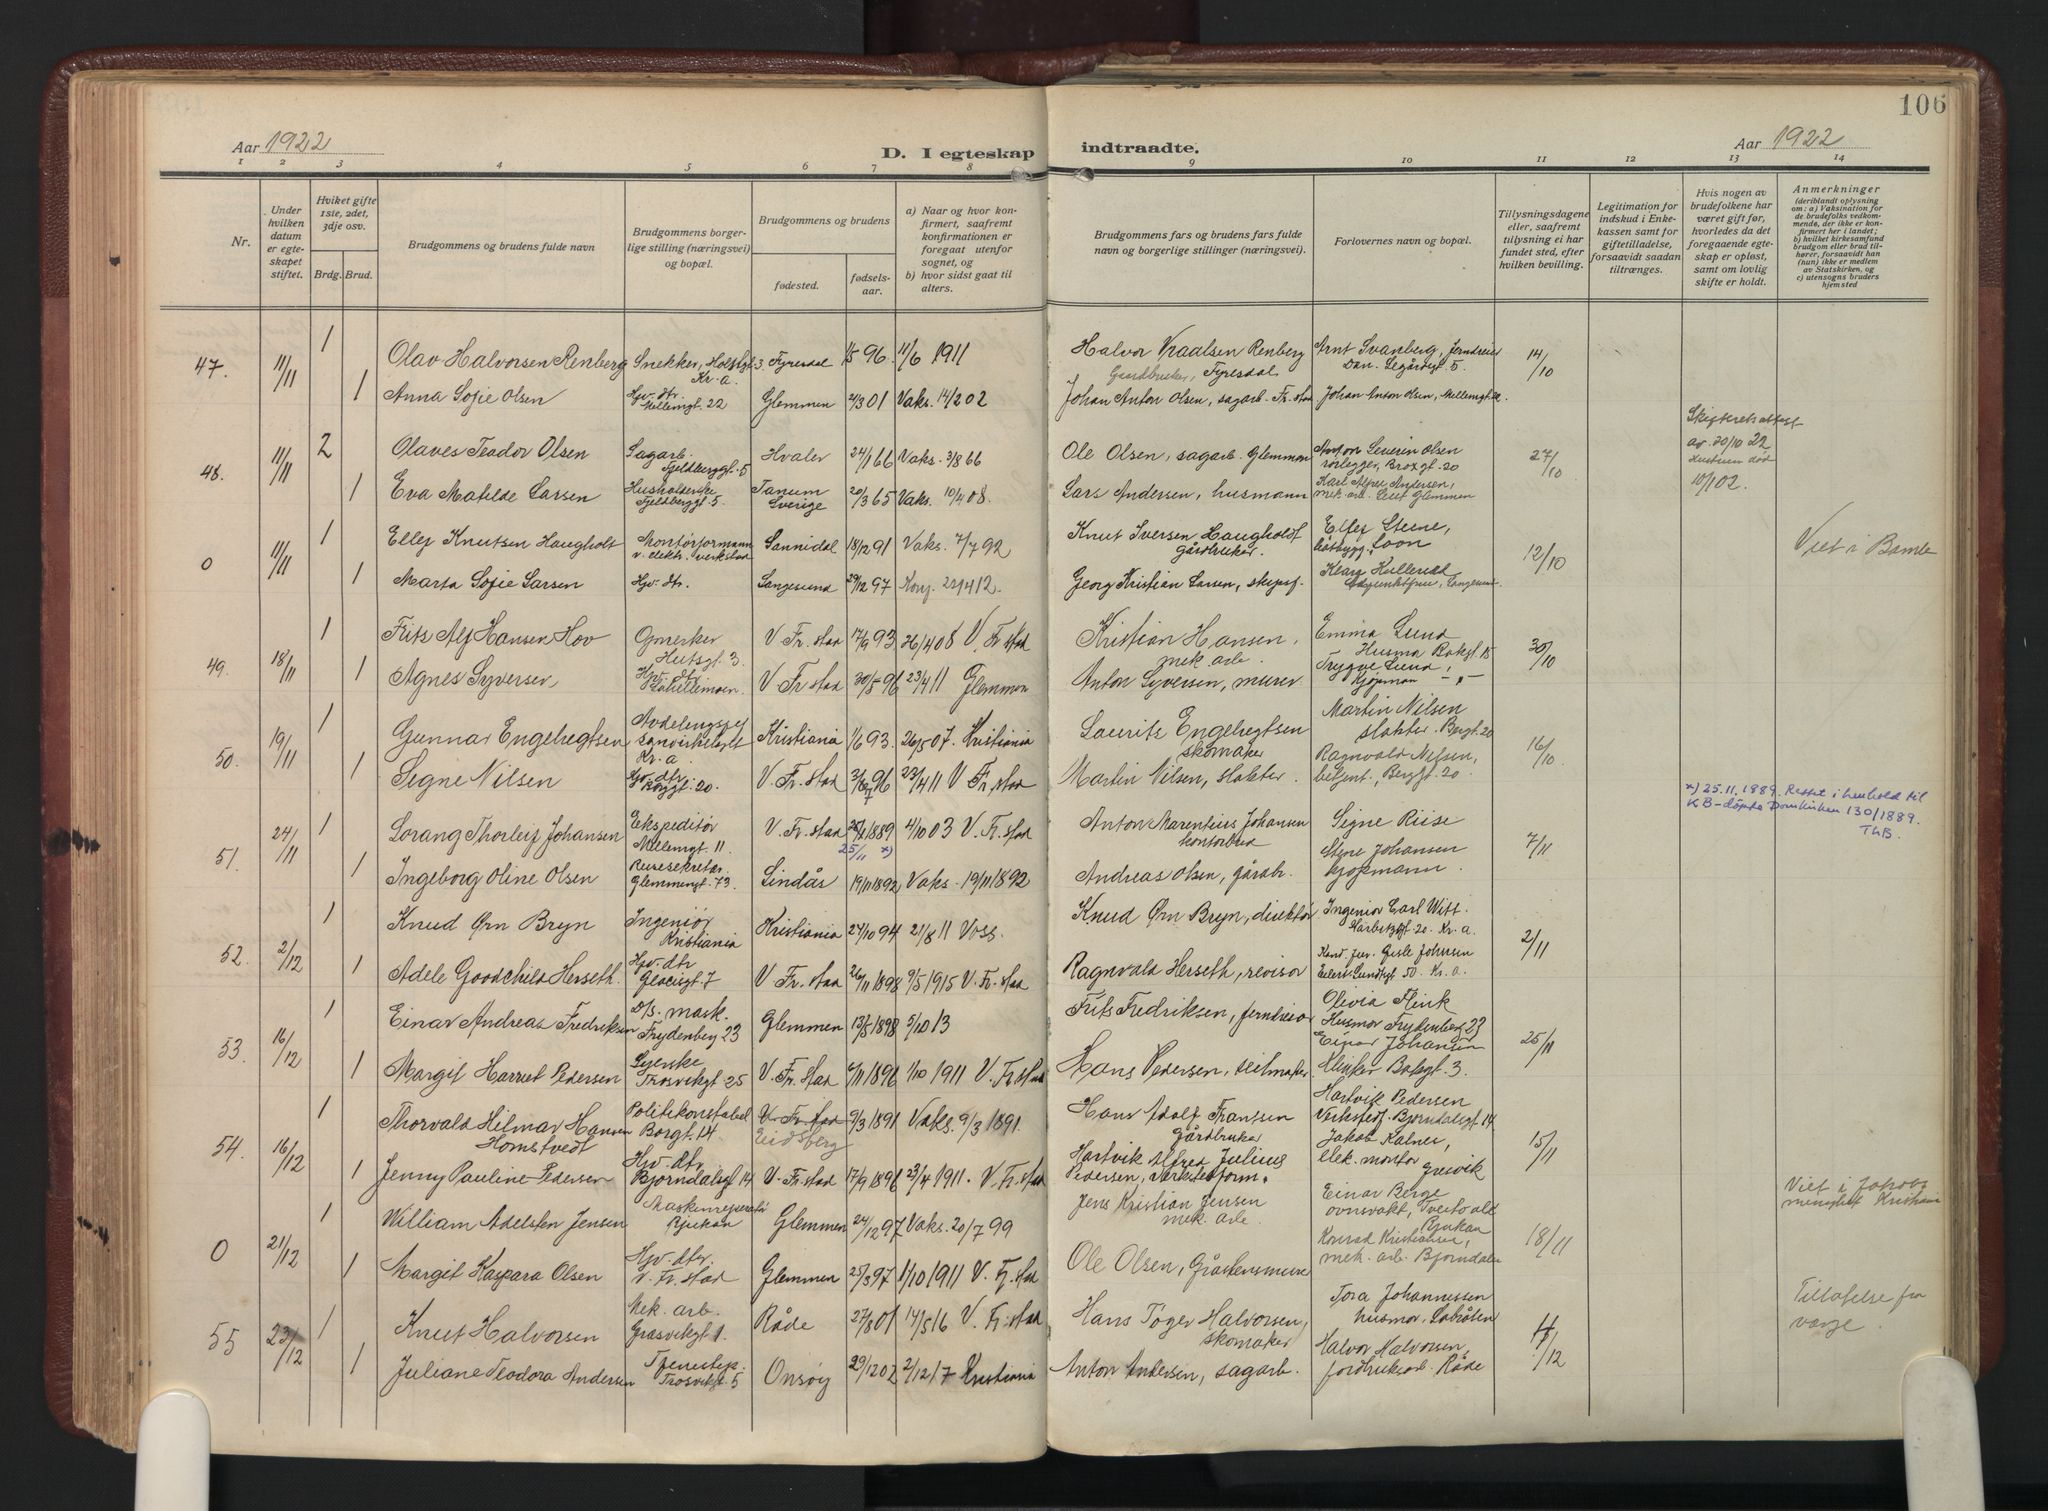 106
Aar 1922
D. I egteskap indtraadte.
Aar 1922
1 2 3 4 5 6 7 8 9 10 11 12 13 14
Nr.
Under hvilken datum er egteskapet stiftet.
Hviket gifte 1ste, 2det, 3dje osv.
Brdg. Brud.
Brudgommens og brudens fulde navn
Brudgommens borgerlige stilling (næringsvei) og bopæl.
Brudgommens og brudens
fødested.
fødselsaar.
a) Naar og hvor konfirmert, saafremt konfirmationen er foregaat utenfor sognet, og
b) hvor sidst gaat til alters.
Brudgommens fars og brudens fars fulde navn og borgerlige stillinger (næringsvei).
Forlovernes navn og bopæl.
Tillysningsdagene eller, saafremt tillysning ei har fundet sted, efter hvilken bevilling.
Legitimation for indskud i Enkekassen samt for giftetilladelse, forsaavidt saadan tiltrænges.
Hvis nogen av brudefolkene har været gift før, hvorledes da det foregaaende egteskap er opløst, samt om lovlig skifte er holdt.
Anmerkninger (deriblandt oplysning om: a) Vaksination for de brudefolks vedkommende, der ikke er konfirmert her i landet; b) hvilket kirkesamfund brudgom eller brud tilhører, forsaavidt han (hun) ikke er medlem av Statskirken, og c) utensogns bruders hjemsted
47. 11/11 1 Olav Halvorsen Renberg Snekker, Holstgt 3. Kr.a Fyresdal 1/5 96 11/6 1911 Halvor Vraalsen Renberg Gaardbruker, Fyresdal Arnt Svanberg, Jerndreier Dan. Legårdgt. 5. 14/10
1 Anna Sofie Olsen Hjv. dtr. Møllemgt. 22 Glemmen 2/3 01 Vaks. 14/2 02 Johan Anton Olsen, sagarb. Fr.stad Johan Anton Olsen, Møllemgt.
48. 11/11 2 Olaves Teodor Olsen Sagarb. Fjeldberggt. 5 Hvaler 24/1 66 Vaks. 3/8 66 Ole Olsen, sagarb. Glemmen Anton Severin Olsen rørlegger, Brogt. 20 27/10 Skifteretsattest av 20/10 22 Hustruen død 10/1 02.
1 Eva Matilde Larsen Husholderske Fjeldberggt. 5. Tanum Sverige 20/3 65 Vaks. 10/4 08. Lars Andersen, husmann Karl Alfred Andersen, mek. arb. Glemmen
0 11/11 1 Ellef Knutsen Haugholt Montørformann v. elektr. verkstad Sannidal 18/12 91 Vaks. 7/7 92 Knut Iversen Haugholt gårdbruker. Ellef Steene, båtbygg. 12/10 Viet i Bamle
1 Marta Sofie Larsen Hjv. dtr. Langesund 29/12 97 Konf. 22/4 12. Georg Kristian Larsen, skipsf. Klara Hullerud Langesund
49. 18/11 1 Frits Alf Hansen Hov V. Fr.stad 17/9 93 26/4 08 V. Fr.stad Kristian Hansen, mek. arb. Emma Lund Husmor Bakgt. 15 30/10
1 Agnes Syversen Hjv. dtr. V. Fr.stad 30/5 96 23/4 11 Glemmen Anton Syversen, murer Trygve Lund, Kjøpman — „ —
50. 19/11 1 Gunnar Engebregtsen Kr.a Kristiania 1/6 93. 26/5 07. Kristiania Laurits Engebregtsen skomaker Martin Nilsen slakter. Bergt. 20 16/10
1 Signe Nilsen Hjv. dtr. V. Fr.stad 96 23/4 11 V Fr.stad Martin Nilsen, slakter. Ragnvald Nilsen, betjent, Bergt. 20.
x) 25.11.1889. Rettet i henhold til KB-døpte Domkirken 130/1889. ThB.
51. 24/11 1 Sorang Thorleif Johansen Ekspeditør Møllemgt. 11. V. Fr.stad 1889 25/11 x) 4/10 03 V. Fr.stad Anton Marentius Johansen kontorbud Signe Riise 7/11
1 Ingeborg Oline Olsen Reisesekretær Glemmengt. 73. Lindås 19/11 1892 Vaks. 19/11 1892 Andreas Olsen, gårdbr. Johansen kjøpmann.
52. 2/12 1 Knud Ørn Bryn Ingeniør Kristiania Kristiania 27/10 94 21/8 11 Voss. Knud Ørn Bryn, direktør Ingeniør Carl Witt. 20. Kr.a. 2/11
1 Adele Goodchild Herseth. Hjv. dtr Glacisgt. 7 V. Fr.stad 26/11 1898 9/5 1915 V. Fr.stad Ragnvald Herseth, revisor Kand. jur. Gisle Johnsen Eilert Sundtsgt 50. Kr.a.
53. 16/12 1 Einar Andreas Fredriksen D/S. mask. Frydenberg 23 Glemmen 13/5 1898 5/10 13 Frits Fredriksen, jerndreier Olivia Flink Husmor Frydenberg 23 25/11
1 Margit Harriet Pedersen Syerske Trosvikgt 25 V. Fr.stad 6/11 1896 1/10 1911 V. Fr.stad Hans Pedersen, seilmaker. Einar Johansen Klinker Bakgt. 3.
54. 16/12 1 Thorvald Hilmar Hansen Homstvedt Politikonstabel Borgt. 14 V. Fr.stad Eidsberg 9/3 1891 Vaks. 9/3 1891. Hans Adolf Fransen Gårdbruker Hartvik Pedersen Verkstedf. Bjørndalsgt 14 15/11
1 Jenny Pauline Pedersen Hjv. dtr. Bjørndalsgt 14 V. Fr.stad 17/9 1896 23/4 1911. V. Fr.stad Hartvik Alfred Julius Pedersen, Verkstedform. Jakob Kalnes, elek. montør Gresvik
0 21/12 1 William Adelsten Jensen Maskinreparatør Rjukan Glemmen 24/12 97 Vaks. 20/7 99 Jens Kristian Jensen mek. arb. Einar Berge ovnsvakt, Tveito allé Rjukan 18/11 Viet i Jakobs menighet Kristiania
1 Margit Kaspara Olsen Hjv. dtr. V. Fr.stad Glemmen 25/3 97 1/10 1911 V. Fr.stad Ole Olsen, Gråstensmurer Konrad Kristiansen, mek. arb. Bjørndalen
55 23/12 1 Knut Halvorsen Mek. arb. Gresvikgt 1. Råde 27/8 01 14/5 16 V. Fr.stad Hans Tøger Halvorsen, skomaker Tora Johannessen husmor, Labråten /12 Tillatelse fra verge.
1 Juliane Teodora Andersen Tjenestep. Trosvikgt. 5 Onsøy 29/12 02 2/12 17 Kristiania Anton Andersen, sagarb. Halvor Halvorsen, jordbruksarb. Råde